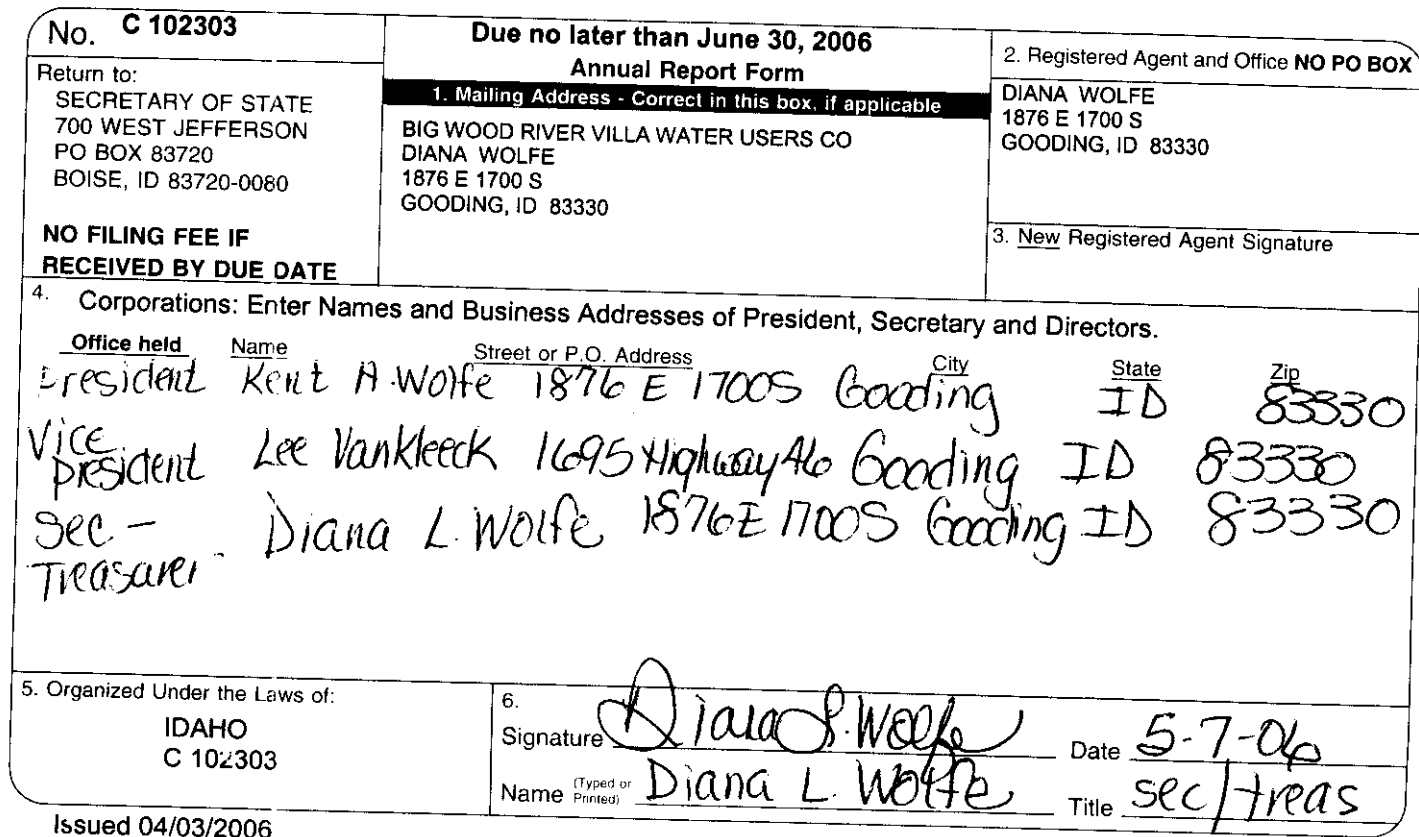 No. C 102303
Return to:
SECRETARY OF STATE
700 WEST JEFFERSON
PO BOX 83720
BOISE, ID 83720-0080
NO FILING FEE IF
RECEIVED BY DUE DATE
Due no later than June 30, 2006
Annual Report Form
1. Mailing Address - Correct in this box, if applicable
BIG WOOD RIVER VILLA WATER USERS CO
DIANA WOLFE
1876 E 1700 S
GOODING, ID 83330
2. Registered Agent and Office NO PO BOX
DIANA WOLFE
1876 E 1700 S
GOODING, ID 83330
3. New Registered Agent Signature
4. Corporations: Enter Names and Business Addresses of President, Secretary and Directors.
Office held Name Street or P.O. Address City State Zip
President Kent A. Wolfe 1876 E 1700S Gooding ID 83330
Vice
president Lee Vankleeck 1695 Highway 46 Gooding ID 83330
Sec. - Diana L. Wolfe 1876 E 1700S Gooding ID 83330
Treasurer
5. Organized Under the Laws of:
IDAHO
C 102303
6.
Signature Diana L. Wolfe Date 5-7-06
Name (Typed or Printed) Diana L. Wolfe Title sec/treas
Issued 04/03/2006